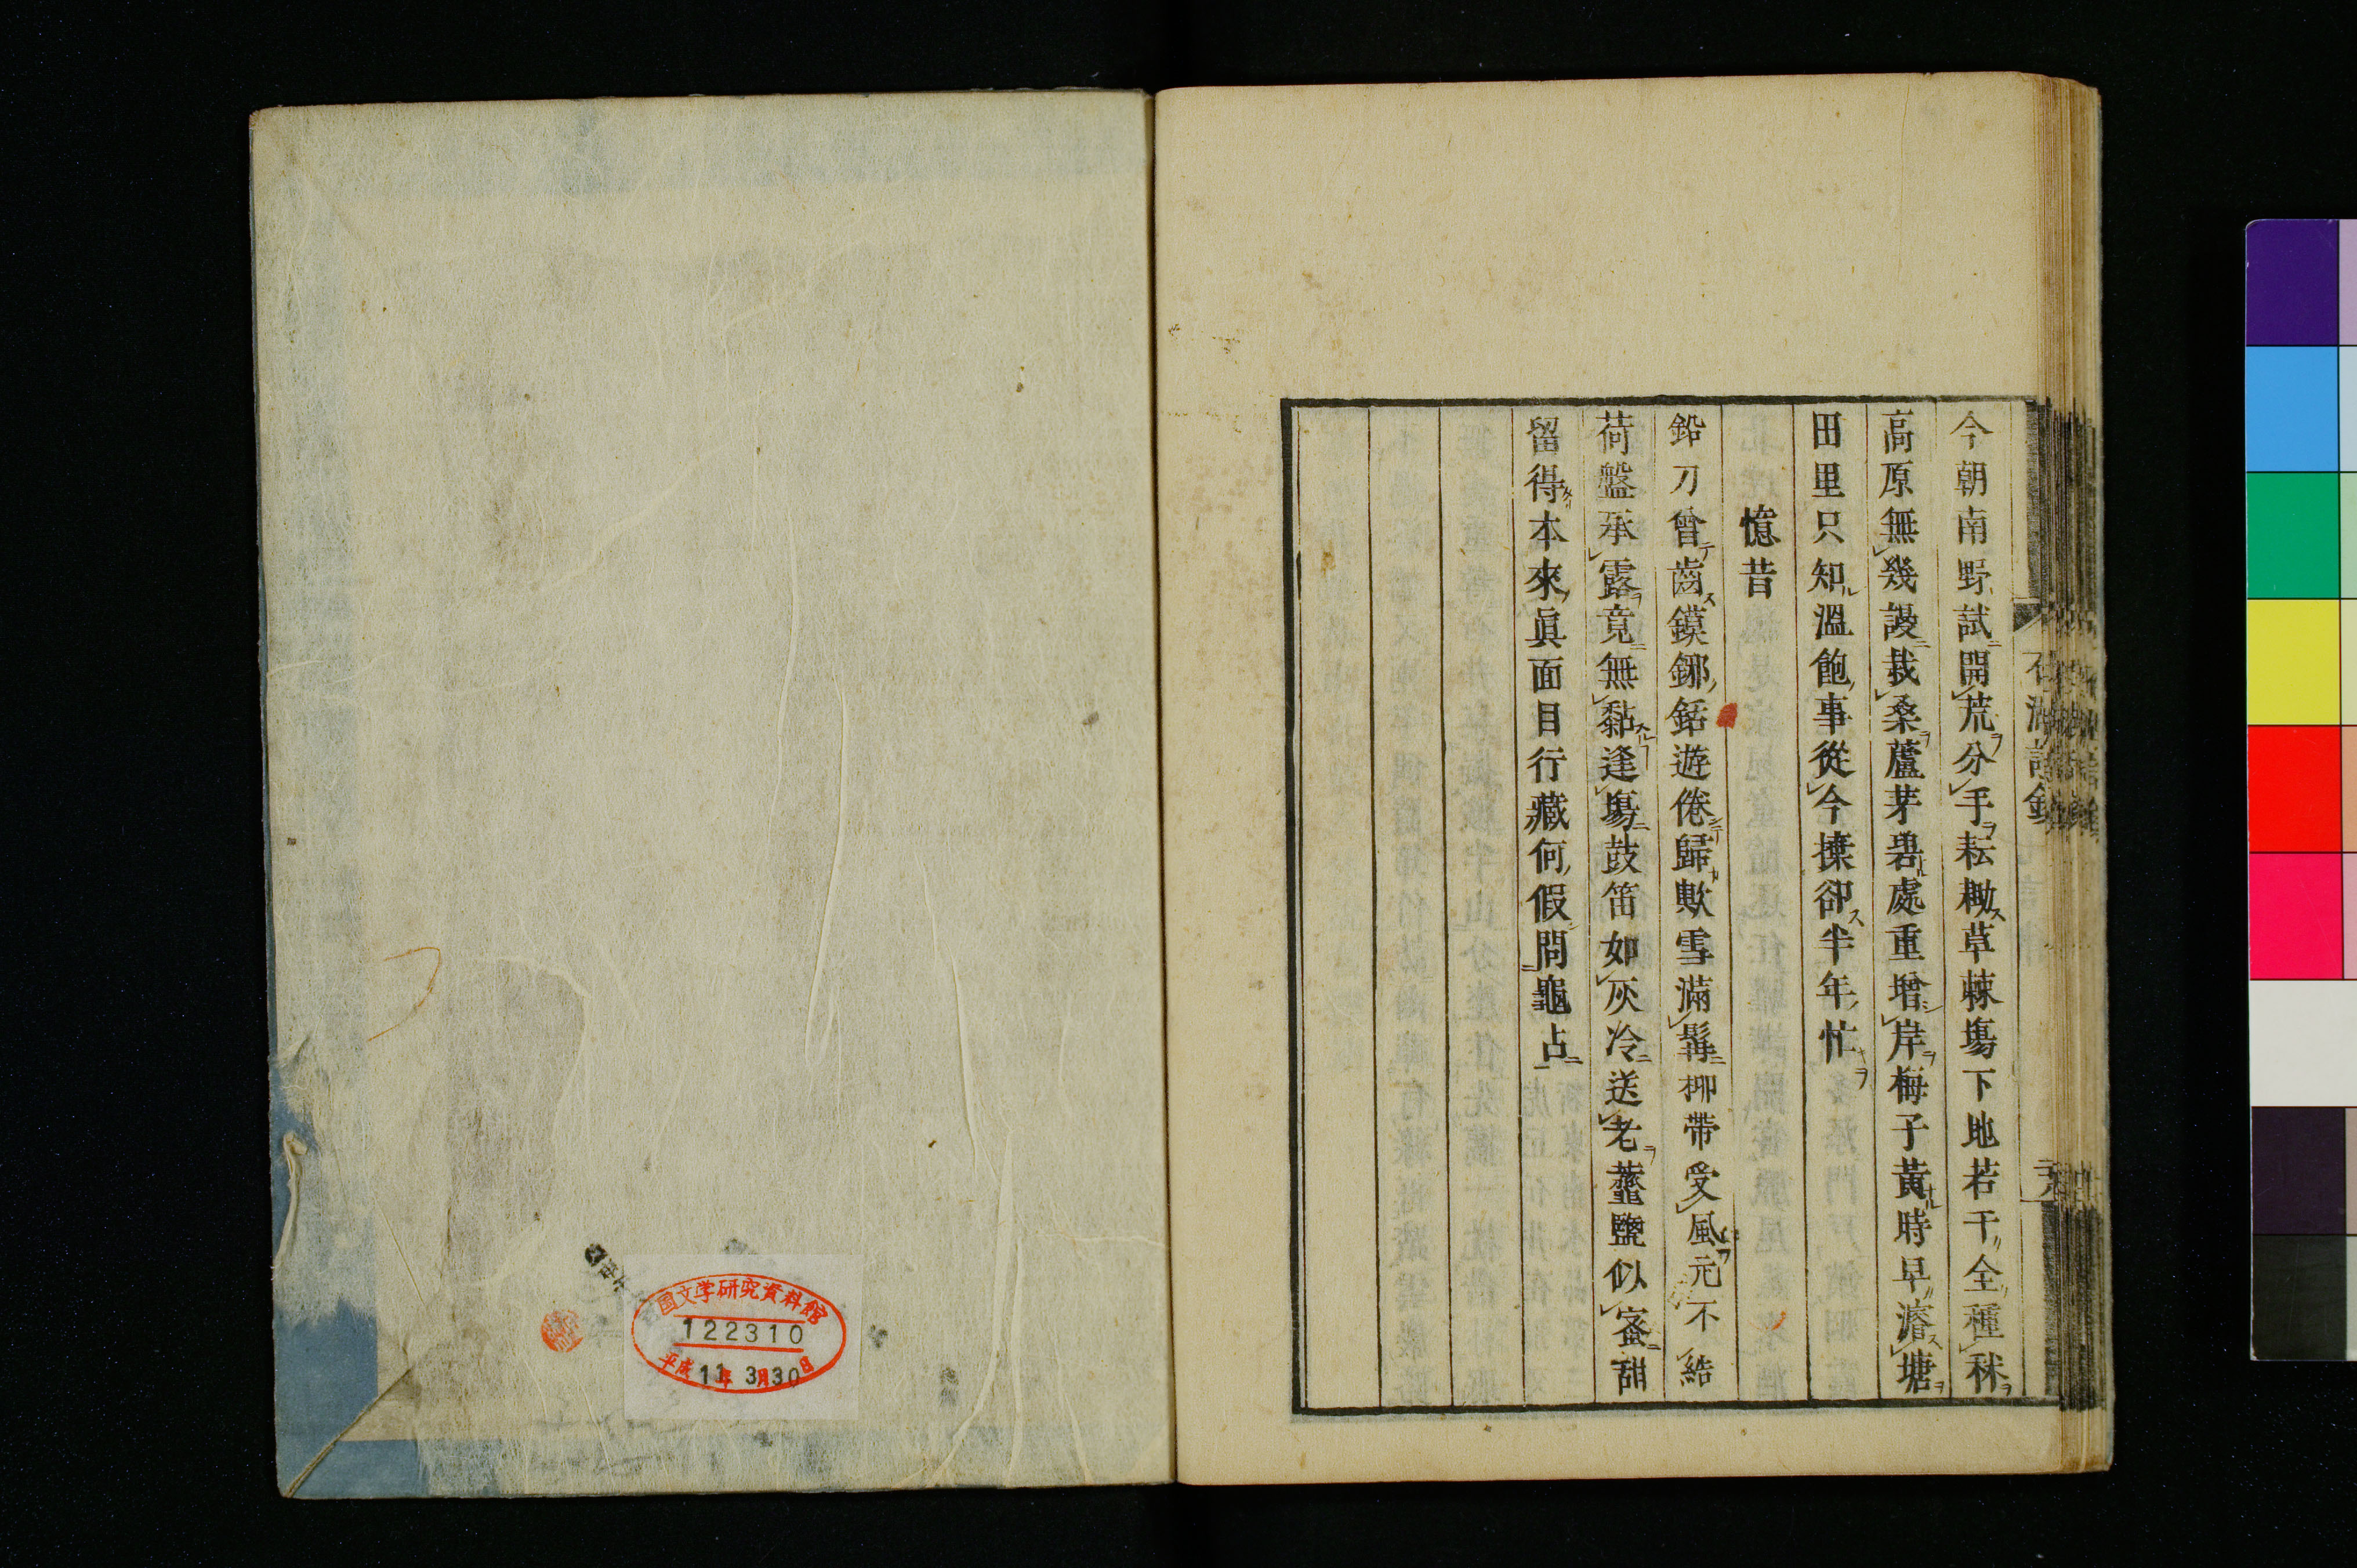 石湖詩鈔
今朝南野試開荒分手耘耡草棘場下地若干全種秫
高原無幾謾栽桑蘆茅碧處重增岸梅子黃時早濬塘
田里只知溫飽事從今擽卻半年忙
憶昔
鉛刀曾齒鏌鋣銛遊倦歸歟雪滿髯柳帶受風元不結
荷盤承露竟無黏逢場鼓笛如灰冷送老虀鹽似蜜甜
留得本來眞面目行藏何假問龜占
国文学研究資料館
122310
平成11年3月30日